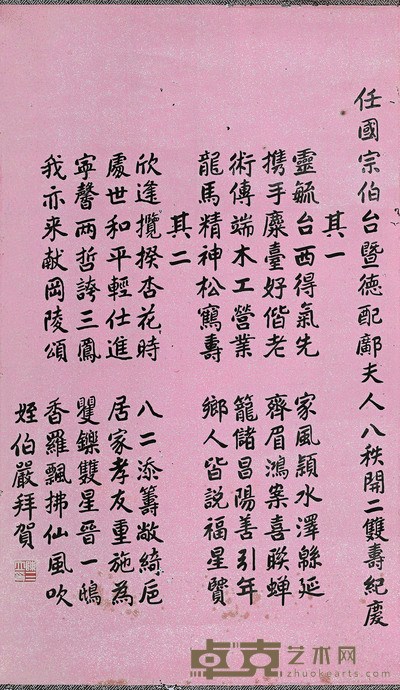 任國宗伯台暨德配鄺夫人八秩開二雙壽紀慶
其一
靈毓台西得氣先 家風穎水澤緜延
携手麋臺好偕老 齊眉鴻案喜聯蟬
術傳端木工營業 籠儲昌陽善引年
龍馬精神松鶴壽 鄉人皆説福星賢
其二
欣逢攬揆杏花時 八二添籌敞綺巵
處世和平輕仕進 居家孝友重施為
寧馨兩哲誇三鳳 矍鑠雙星晉一鴟
我亦来献岡陵頌 香羅飄拂仙風吹
姪伯嚴拜賀
卓克艺术网
zhuokearts.com